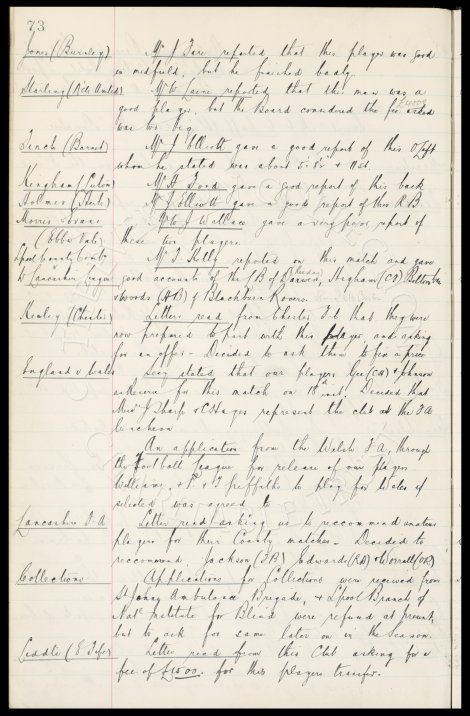 73
Jones (Burnley) Mr J Fare reported that this player was good
in midfield, but he finished badly.
Starling (Nctle Untd) Mr W Zaine reported that this man was a
good player, but the Board considered the fee asked £4000
was too big.
Finch (Barnet) Mr J Elliott gave a good report of this O/left
whom he stated was about 5'8½ + 11st.
Kingham (Luton) Mr H Food gave a good report of this back
Holmes (Herts) Mr J Elliott gave a good report of this R.B.
Morris & Evans Mr W J Wallace gave a very poor report of
(Ebbw Vale) these two players.
Lpool County Comb Mr T Kelly reported on this match and gave
v Lancashire League good accounts of the LB of Darwen, Higham (CH)
& Woods (HB) of Blackburn Rovers.
(Chester) Letters read from Chester F.C that they were
now prepared to part with this player, and asking
for an offer - Decided to ask them to fix a price
England v Wales Secy stated that our players Gee (CH) & Johnson
as Reserve for this match on 18th inst. Decided that
Messrs J Sharp & C Hayes represent the club at the FA
luncheon.
An application from the Welsh F.A, through
the Football League for release of our players
Williams, & T Griffiths to play for Wales if
selected was agreed to
Lancashire F.A Letter read asking us to reccomend amateur
players for their County matches - Decided to
reccommend. Jackson (FB) Edwards (RH) & Worrall (OR)
Collections Applications for Collections were received from
St Johns Ambulance Brigade, & Lpool Branch of
Natl Institute for Blind were refused at present,
but to ask for same later on in the Season.
Liddle (E Fife) Letter read from this Club asking for a
fee of £1500. for this players transfer.